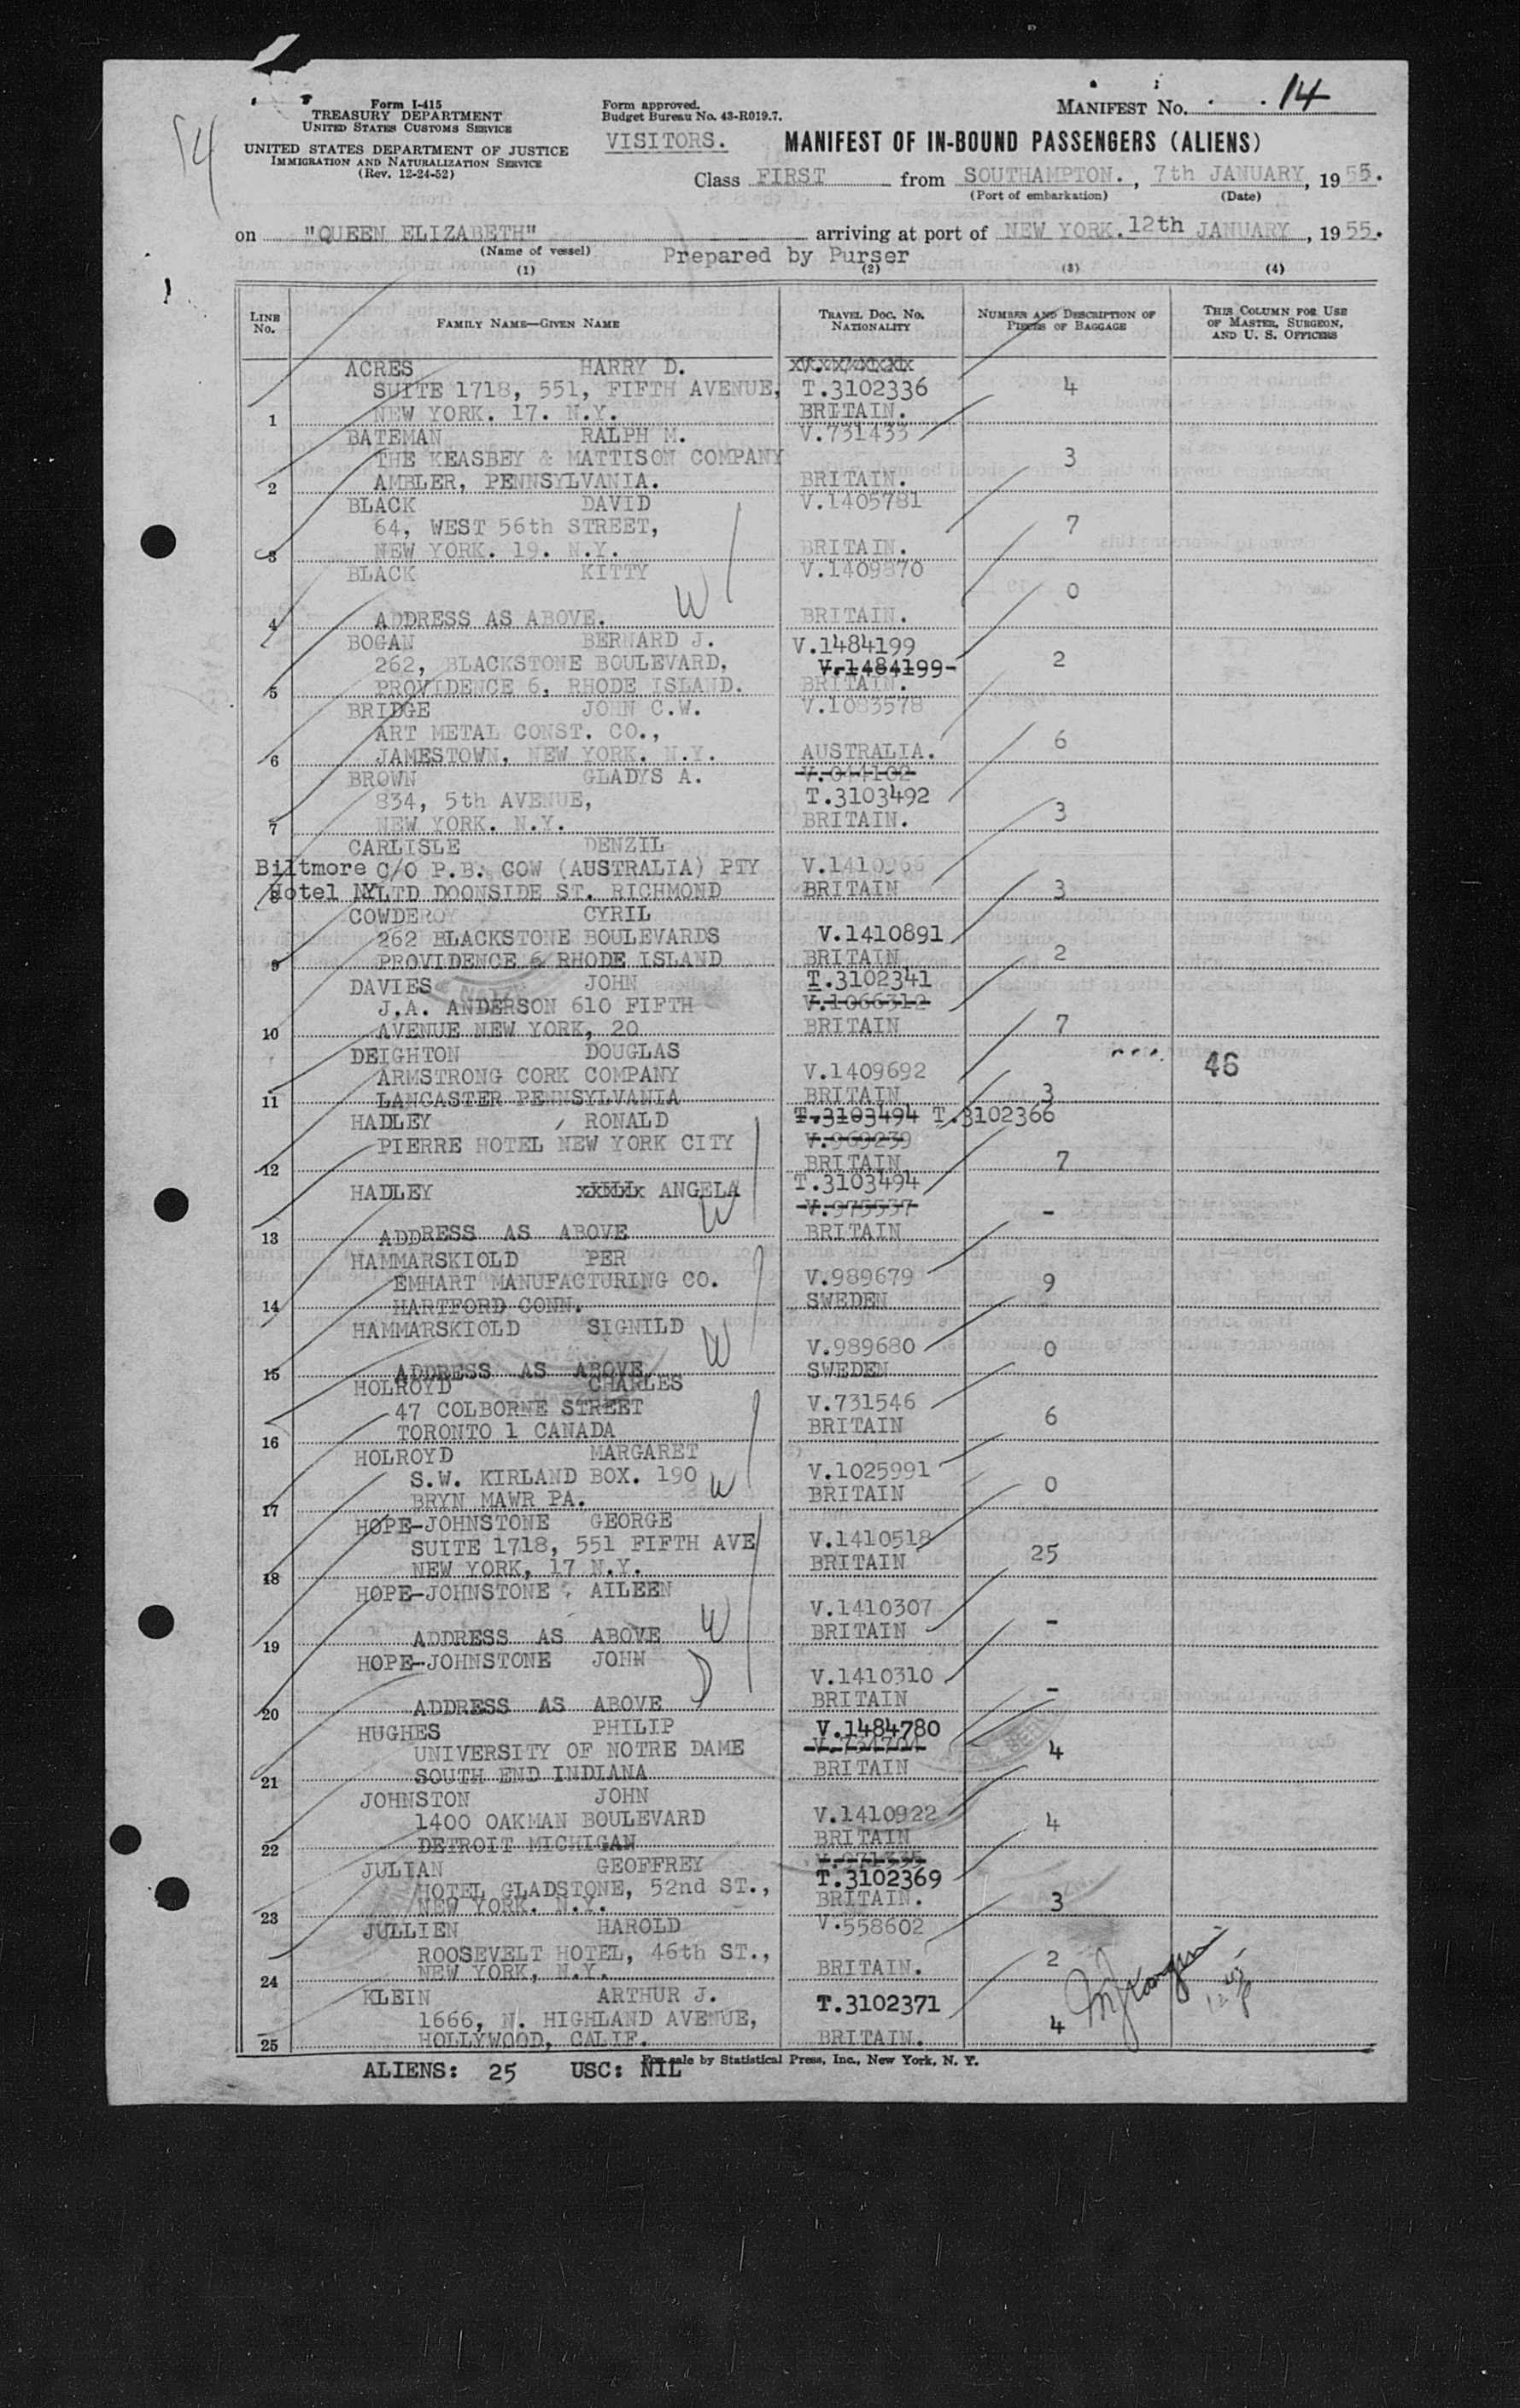 14
Form I-415
TREASURY DEPARTMENT
UNITED STATES CUSTOMS SERVICE
UNITED STATES DEPARTMENT OF JUSTICE
IMMIGRATION AND NATURALIZATION SERVICE
(Rev. 12-24-52)
Form approved.
Budget Bureau No. 43-R019.7.
VISITORS.
MANIFEST No. 14
MANIFEST OF IN-BOUND PASSENGERS (ALIENS)
Class FIRST from SOUTHAMPTON., 7th JANUARY, 1955.
(Port of embarkation) (Date)
on "QUEEN ELIZABETH" arriving at port of NEW YORK. 12th JANUARY, 1955.
(Name of vessel) Prepared by Purser
(1) (2) (3) (4)
LINE No. FAMILY NAME—GIVEN NAME TRAVEL DOC. No. NATIONALITY NUMBER AND DESCRIPTION OF PIECES OF BAGGAGE THIS COLUMN FOR USE OF MASTER, SURGEON, AND U. S. OFFICERS
ACRES HARRY D.
SUITE 1718, 551, FIFTH AVENUE, T.3102336 4
1 NEW YORK. 17. N.Y. BRITAIN.
BATEMAN RALPH M. V.731433
THE KEASBEY & MATTISON COMPANY 3
2 AMBLER, PENNSYLVANIA. BRITAIN.
BLACK DAVID V.1405781
64, WEST 56th STREET, 7
3 NEW YORK. 19. N.Y. BRITAIN.
BLACK KITTY V.1409870
W 0
4 ADDRESS AS ABOVE. BRITAIN.
BOGAN BERNARD J. V.1484199
262, BLACKSTONE BOULEVARD, V.1484199 2
5 PROVIDENCE 6, RHODE ISLAND. BRITAIN.
BRIDGE JOHN C.W. V.1083578
ART METAL CONST. CO., 6
6 JAMESTOWN, NEW YORK. N.Y. AUSTRALIA.
BROWN GLADYS A. V.044102
834, 5th AVENUE, T.3103492
7 NEW YORK. N.Y. BRITAIN. 3
CARLISLE DENZIL
Biltmore C/O P.B. COW (AUSTRALIA) PTY V.1410966
8 Hotel NY LTD DOONSIDE ST. RICHMOND BRITAIN 3
COWDEROY CYRIL
262 BLACKSTONE BOULEVARDS V.1410891
9 PROVIDENCE 6 RHODE ISLAND BRITAIN 2
DAVIES JOHN T.3102341
J.A. ANDERSON 610 FIFTH V.1066312
10 AVENUE NEW YORK, 20 BRITAIN 7
DEIGHTON DOUGLAS
ARMSTRONG CORK COMPANY V.1409692 46
11 LANCASTER PENNSYLVANIA BRITAIN 3
HADLEY RONALD T.3103494 T.3102366
PIERRE HOTEL NEW YORK CITY V.969239
12 BRITAIN 7
HADLEY ANGELA T.3103494
W V.975537 -
13 ADDRESS AS ABOVE BRITAIN
HAMMARSKIOLD PER
EMHART MANUFACTURING CO. V.989679 9
14 HARTFORD CONN. SWEDEN
HAMMARSKIOLD SIGNILD
W V.989680 0
15 ADDRESS AS ABOVE SWEDEN
HOLROYD CHARLES
47 COLBORNE STREET V.731546 6
16 TORONTO 1 CANADA BRITAIN
HOLROYD MARGARET
S.W. KIRLAND BOX. 190 W V.1025991 0
17 BRYN MAWR PA. BRITAIN
HOPE-JOHNSTONE GEORGE
SUITE 1718, 551 FIFTH AVE V.1410518 25
18 NEW YORK, 17 N.Y. BRITAIN
HOPE-JOHNSTONE AILEEN
W V.1410307 -
19 ADDRESS AS ABOVE BRITAIN
HOPE-JOHNSTONE JOHN
V.1410310 -
20 ADDRESS AS ABOVE BRITAIN
HUGHES PHILIP V.1484780
UNIVERSITY OF NOTRE DAME 4
21 SOUTH END INDIANA BRITAIN
JOHNSTON JOHN
1400 OAKMAN BOULEVARD V.1410922 4
22 DETROIT MICHIGAN BRITAIN
JULIAN GEOFFREY
HOTEL GLADSTONE, 52nd ST., T.3102369
23 NEW YORK. N.Y. BRITAIN. 3
JULLIEN HAROLD V.558602
ROOSEVELT HOTEL, 46th ST., 2
24 NEW YORK, N.Y. BRITAIN.
KLEIN ARTHUR J. T.3102371
1666, N. HIGHLAND AVENUE, 4
25 HOLLYWOOD, CALIF. BRITAIN.
For sale by Statistical Press, Inc., New York, N. Y.
ALIENS: 25 USC: NIL